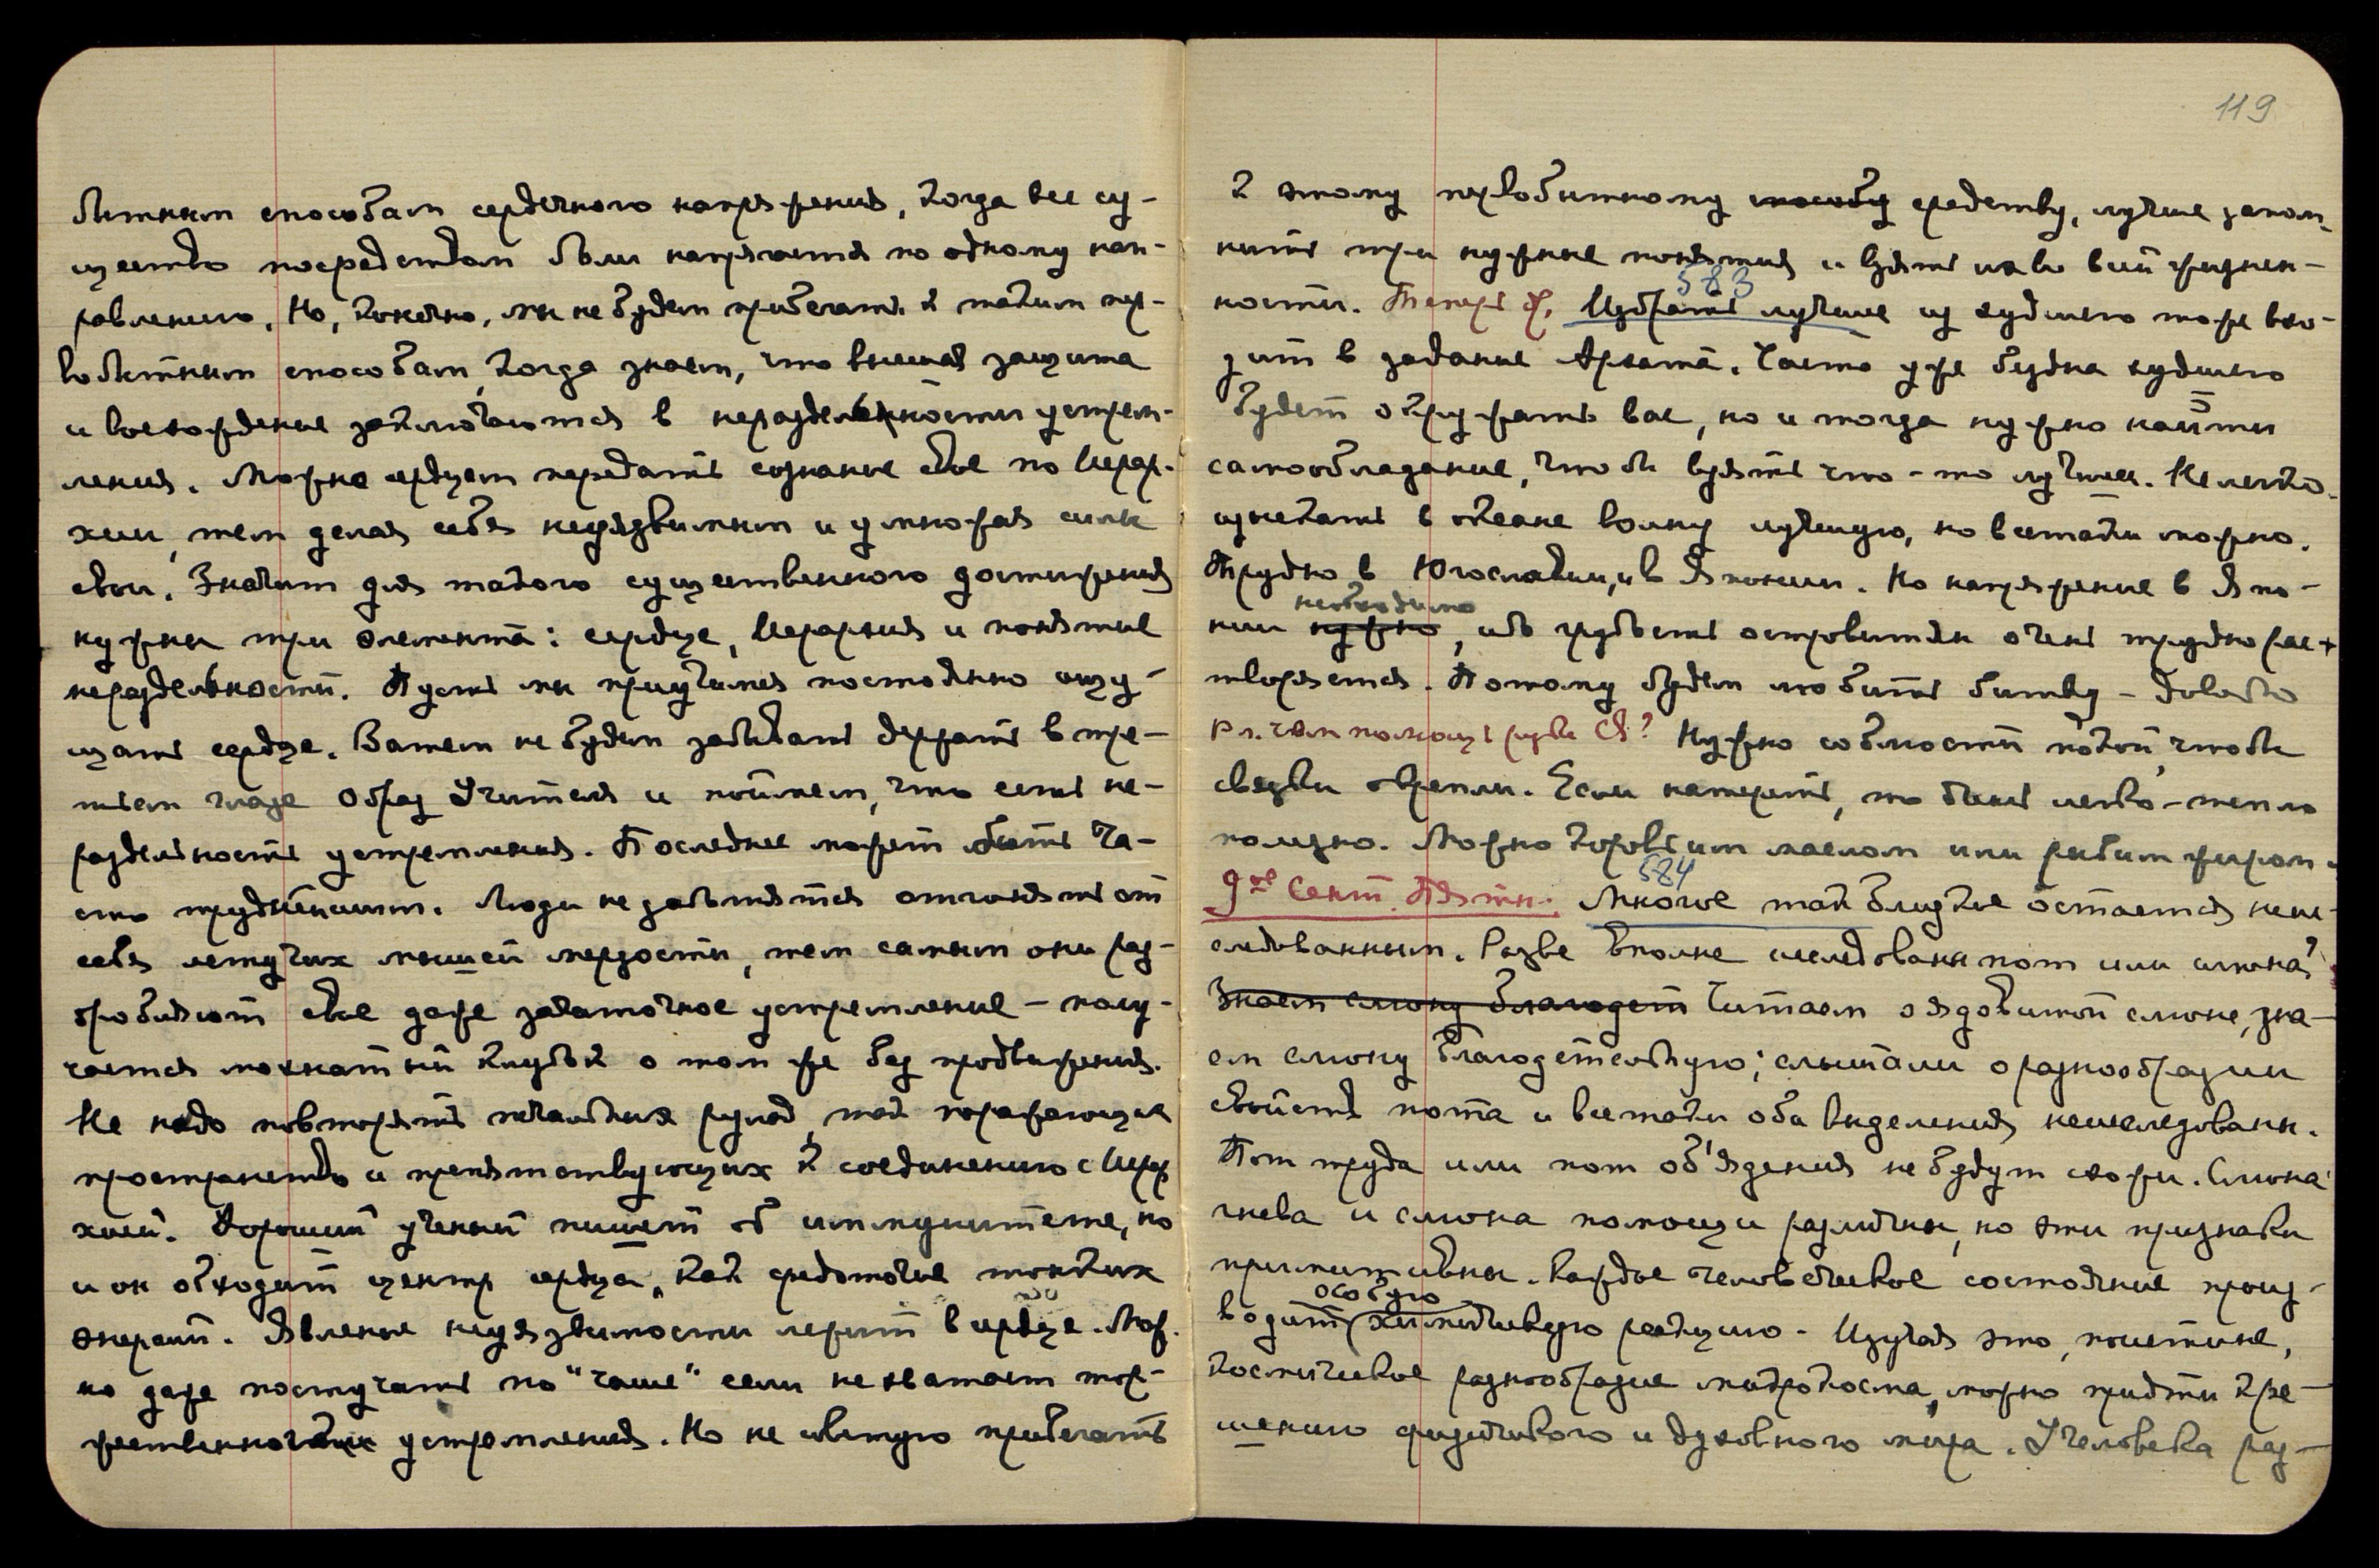 бытным способам сердечного напряжения, когда все су-
щество посредством боли напрягается по одному нап-
равлению. Но, конечно, мы не будем прибегать к таким пер-
вобытным способам, когда знаем, что высшая защита
и восхождение заключаются в нераздельности устрем-
ления. Можно сердцем передать сознание свое по Иерар-
хии, тем делая себя неуязвимым и умножая силы
свои. Значит для такого существенного достижения
нужны три элемента: сердце, Иерархия и понятие
нераздельности. Пусть мы приучимся постоянно ощу-
щать сердце. Затем не будем забывать держать в тре-
тьем глазе Образ Учителя и поймем, что есть не-
раздельность устремления. Последнее может быть ча-
сто труднейшим. Люди не заботятся отгонять от
себя летучих мышей мерзости, тем самым они раз-
дробляют свое даже зачаточное устремление – полу-
чается мохнатый клубок о том же без продвижения.
Не надо повторять печальных рулад, так поражающих
пространство и препятствующих к соединению с Иерар
хией. Хороший ученый пишет об иммунитете, но
и он обходит центр сердца, как средоточие тонких
энергий. Явление неуязвимости лежит в сердце. Мож-
но даже постучать по "чаше" если не хватает тор-
жественного устремления. Но не советую прибегать
119
к этому первобытному способу средству, лучше запом-
нить три нужные понятия и взять их во всей жизнен-
ности. Теперь ж.
583
Избрать лучшее из худшего тоже вхо-
дит в задание Архата. Часто уже бездна худшего
будет окружать вас, но и тогда нужно найти
самообладание, чтобы взять что-то лучшее. Нелегко
сыскать в океане волну лучшую, но всетаки можно.
Трудно в Югославии, и в Японии. Но напряжение в Япо-
необходимо
нии нужно, ибо грубость островитян очень трудно рас-
творяется. Потому будем любить битву – довольно
чем помощь Св? Нужно соблюсти покой, чтобы
связки окрепли. Если натереть, то быть легко-тепло
полезно. Можно коровьим маслом или рыбьим жиром.
9ое Сент. Пятн.
584
Многое так близкое остается неис-
следованным. Разве вполне исследованы пот или слюна?
Знаем слюну благодет Читаем о ядовитой слюне, зна-
ем слюну благодетельную; слыхали о разнообразии
свойств пота и всетаки оба выделения неисследованы.
Пот труда или пот об'ядения не будут схожи. Слюна
гнева и слюна помощи различны, но эти признаки
примитивны. Каждое человеческое состояние произ-
особую
водит химическую реакцию. Изучая это, поистине,
космическое разнообразие микрокосма, можно придти к ре-
шению физического и духовного мира. У человека раз-